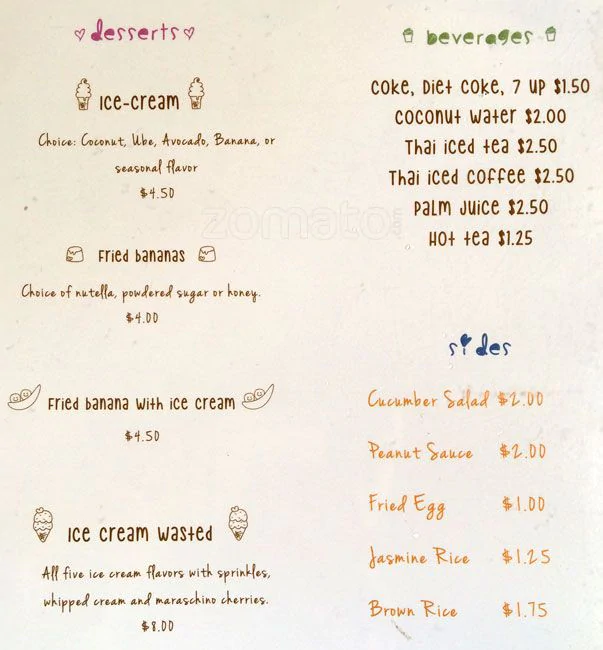 desserts
Ice-cream
Choice: Coconut, Ube, Avocado, Banana, or
seasonal flavor
$4.50
Fried bananas
Choice of nutella, powdered sugar or honey.
$4.00
Fried banana with ice cream
$4.50
Ice cream wasted
All five ice cream flavors with sprinkles,
whipped cream and maraschino cherries.
$8.00
beverages
Coke, Diet Coke, 7 up $1.50
Coconut water $2.00
Thai iced tea $2.50
Thai iced coffee $2.50
Palm Juice $2.50
Hot tea $1.25
sides
Cucumber Salad $2.00
Peanut Sauce $2.00
Fried Egg $1.00
Jasmine Rice $1.25
Brown Rice $1.75
zomato.com